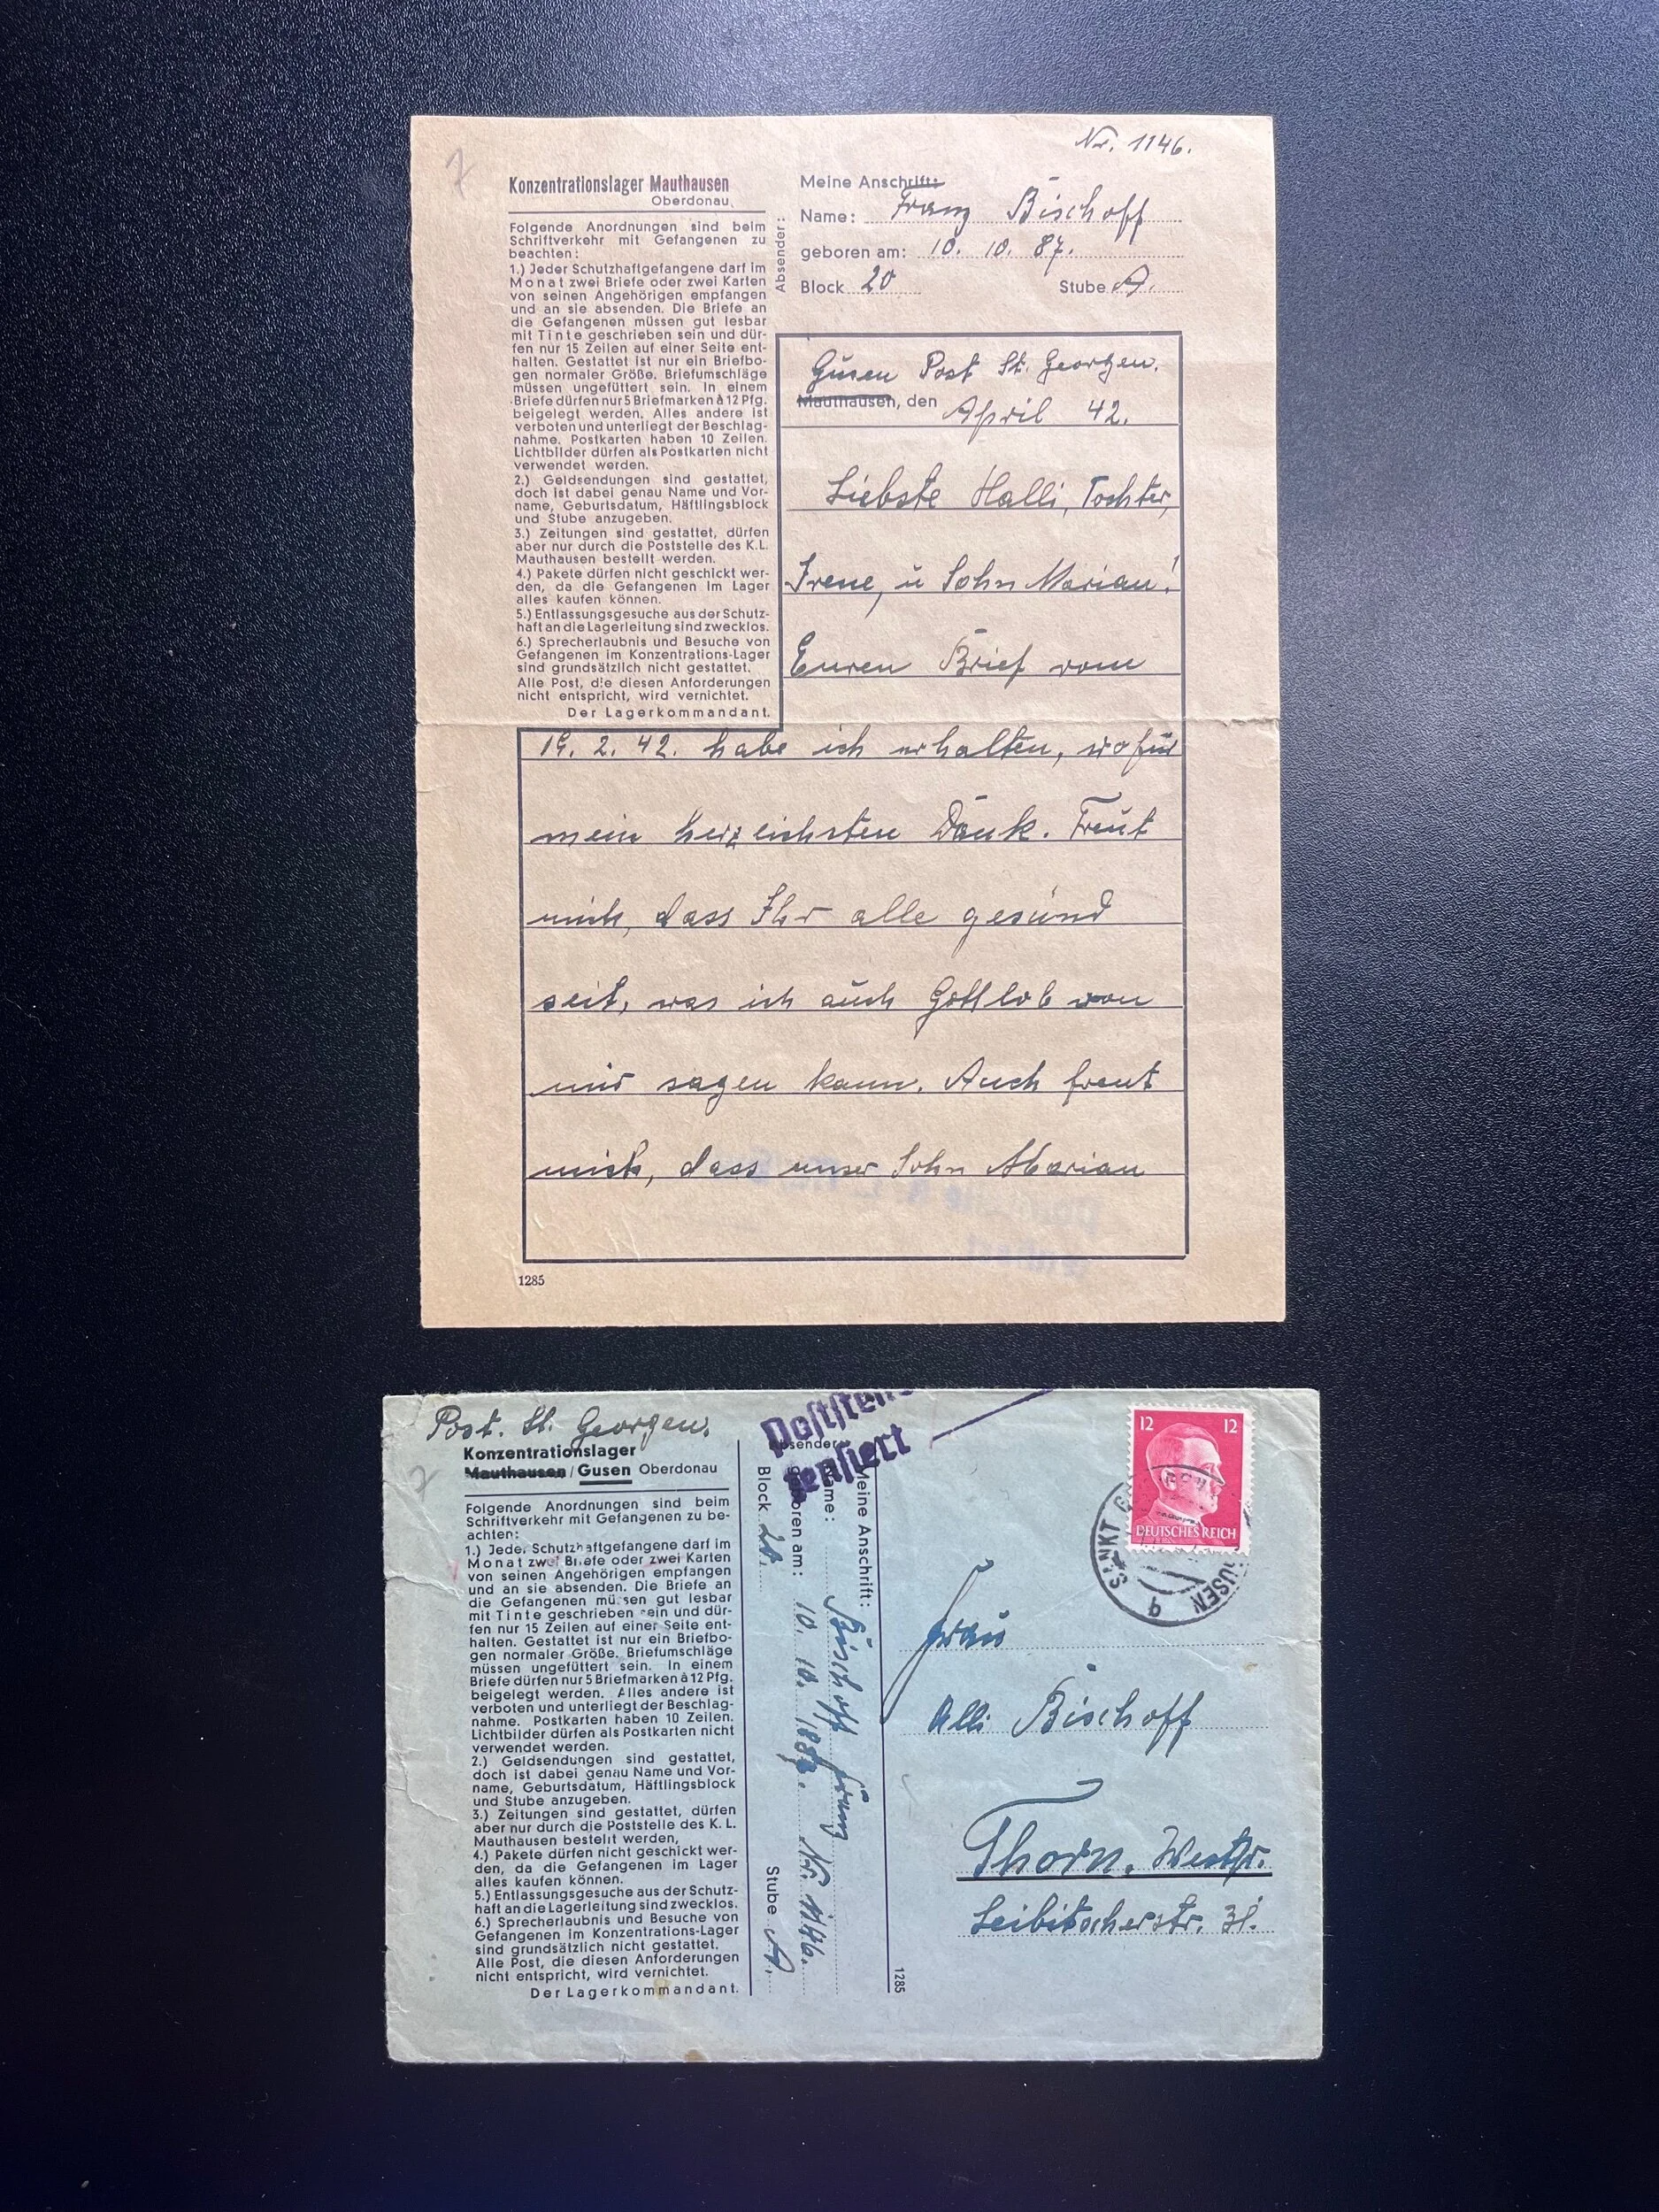 Nr. 1146.
Konzentrationslager Mauthausen
Oberdonau
Folgende Anordnungen sind beim
Schriftverkehr mit Gefangenen zu
beachten:
1.) Jeder Schutzhaftgefangene darf im
Monat zwei Briefe oder zwei Karten
von seinen Angehörigen empfangen
und an sie absenden. Die Briefe an
die Gefangenen müssen gut lesbar
mit Tinte geschrieben sein und dür-
fen nur 15 Zeilen auf einer Seite ent-
halten. Gestattet ist nur ein Briefbo-
gen normaler Größe. Briefumschläge
müssen ungefüttert sein. In einem
Briefe dürfen nur 5 Briefmarken à 12 Pfg.
beigelegt werden. Alles andere ist
verboten und unterliegt der Beschlag-
nahme. Postkarten haben 10 Zeilen.
Lichtbilder dürfen als Postkarten nicht
verwendet werden.
2.) Geldsendungen sind gestattet,
doch ist dabei genau Name und Vor-
name, Geburtsdatum, Häftlingsblock
und Stube anzugeben.
3.) Zeitungen sind gestattet, dürfen
aber nur durch die Poststelle des K.L.
Mauthausen bestellt werden.
4.) Pakete dürfen nicht geschickt wer-
den, da die Gefangenen im Lager
alles kaufen können.
5.) Entlassungsgesuche aus der Schutz-
haft an die Lagerleitung sind zwecklos.
6.) Sprecherlaubnis und Besuche von
Gefangenen im Konzentrations-Lager
sind grundsätzlich nicht gestattet.
Alle Post, die diesen Anforderungen
nicht entspricht, wird vernichtet.
Der Lagerkommandant.
Absender:
Meine Anschrift:
Name: Franz Bischoff
geboren am: 10. 10. 87.
Block 20 Stube A.
Gusen Post St. Georgen.
Mauthausen, den April 42.
Liebste Halli, Tochter,
Irene, u Sohn Marian!
Euren Brief vom
19. 2. 42. habe ich erhalten, wofür
mein herzlichsten Dank. Freut
mich, dass Ihr alle gesund
seit, was ich auch Gottlob von
mir sagen kann. Auch freut
mich, dass unser Sohn Marian
1285
Post. St. Georgen.
Konzentrationslager
Mauthausen / Gusen Oberdonau
Folgende Anordnungen sind beim
Schriftverkehr mit Gefangenen zu be-
achten:
1.) Jeder Schutzhaftgefangene darf im
Monat zwei Briefe oder zwei Karten
von seinen Angehörigen empfangen
und an sie absenden. Die Briefe an
die Gefangenen müssen gut lesbar
mit Tinte geschrieben sein und dür-
fen nur 15 Zeilen auf einer Seite ent-
halten. Gestattet ist nur ein Briefbo-
gen normaler Größe. Briefumschläge
müssen ungefüttert sein. In einem
Briefe dürfen nur 5 Briefmarken à 12 Pfg.
beigelegt werden. Alles andere ist
verboten und unterliegt der Beschlag-
nahme. Postkarten haben 10 Zeilen.
Lichtbilder dürfen als Postkarten nicht
verwendet werden.
2.) Geldsendungen sind gestattet,
doch ist dabei genau Name und Vor-
name, Geburtsdatum, Häftlingsblock
und Stube anzugeben.
3.) Zeitungen sind gestattet, dürfen
aber nur durch die Poststelle des K. L.
Mauthausen bestellt werden,
4.) Pakete dürfen nicht geschickt wer-
den, da die Gefangenen im Lager
alles kaufen können.
5.) Entlassungsgesuche aus der Schutz-
haft an die Lagerleitung sind zwecklos.
6.) Sprecherlaubnis und Besuche von
Gefangenen im Konzentrations-Lager
sind grundsätzlich nicht gestattet.
Alle Post, die diesen Anforderungen
nicht entspricht, wird vernichtet.
Der Lagerkommandant.
zensiert
Absender:
Meine Anschrift:
Name: Bischoff Franz
geboren am: 10. 10. 1887. Nr. 1146.
Block 20. Stube A.
1285
12 12
DEUTSCHES REICH
SANKT
USEN
Frau
Alli Bischoff
Thorn, Westpr.
Leibitscherstr. 31.